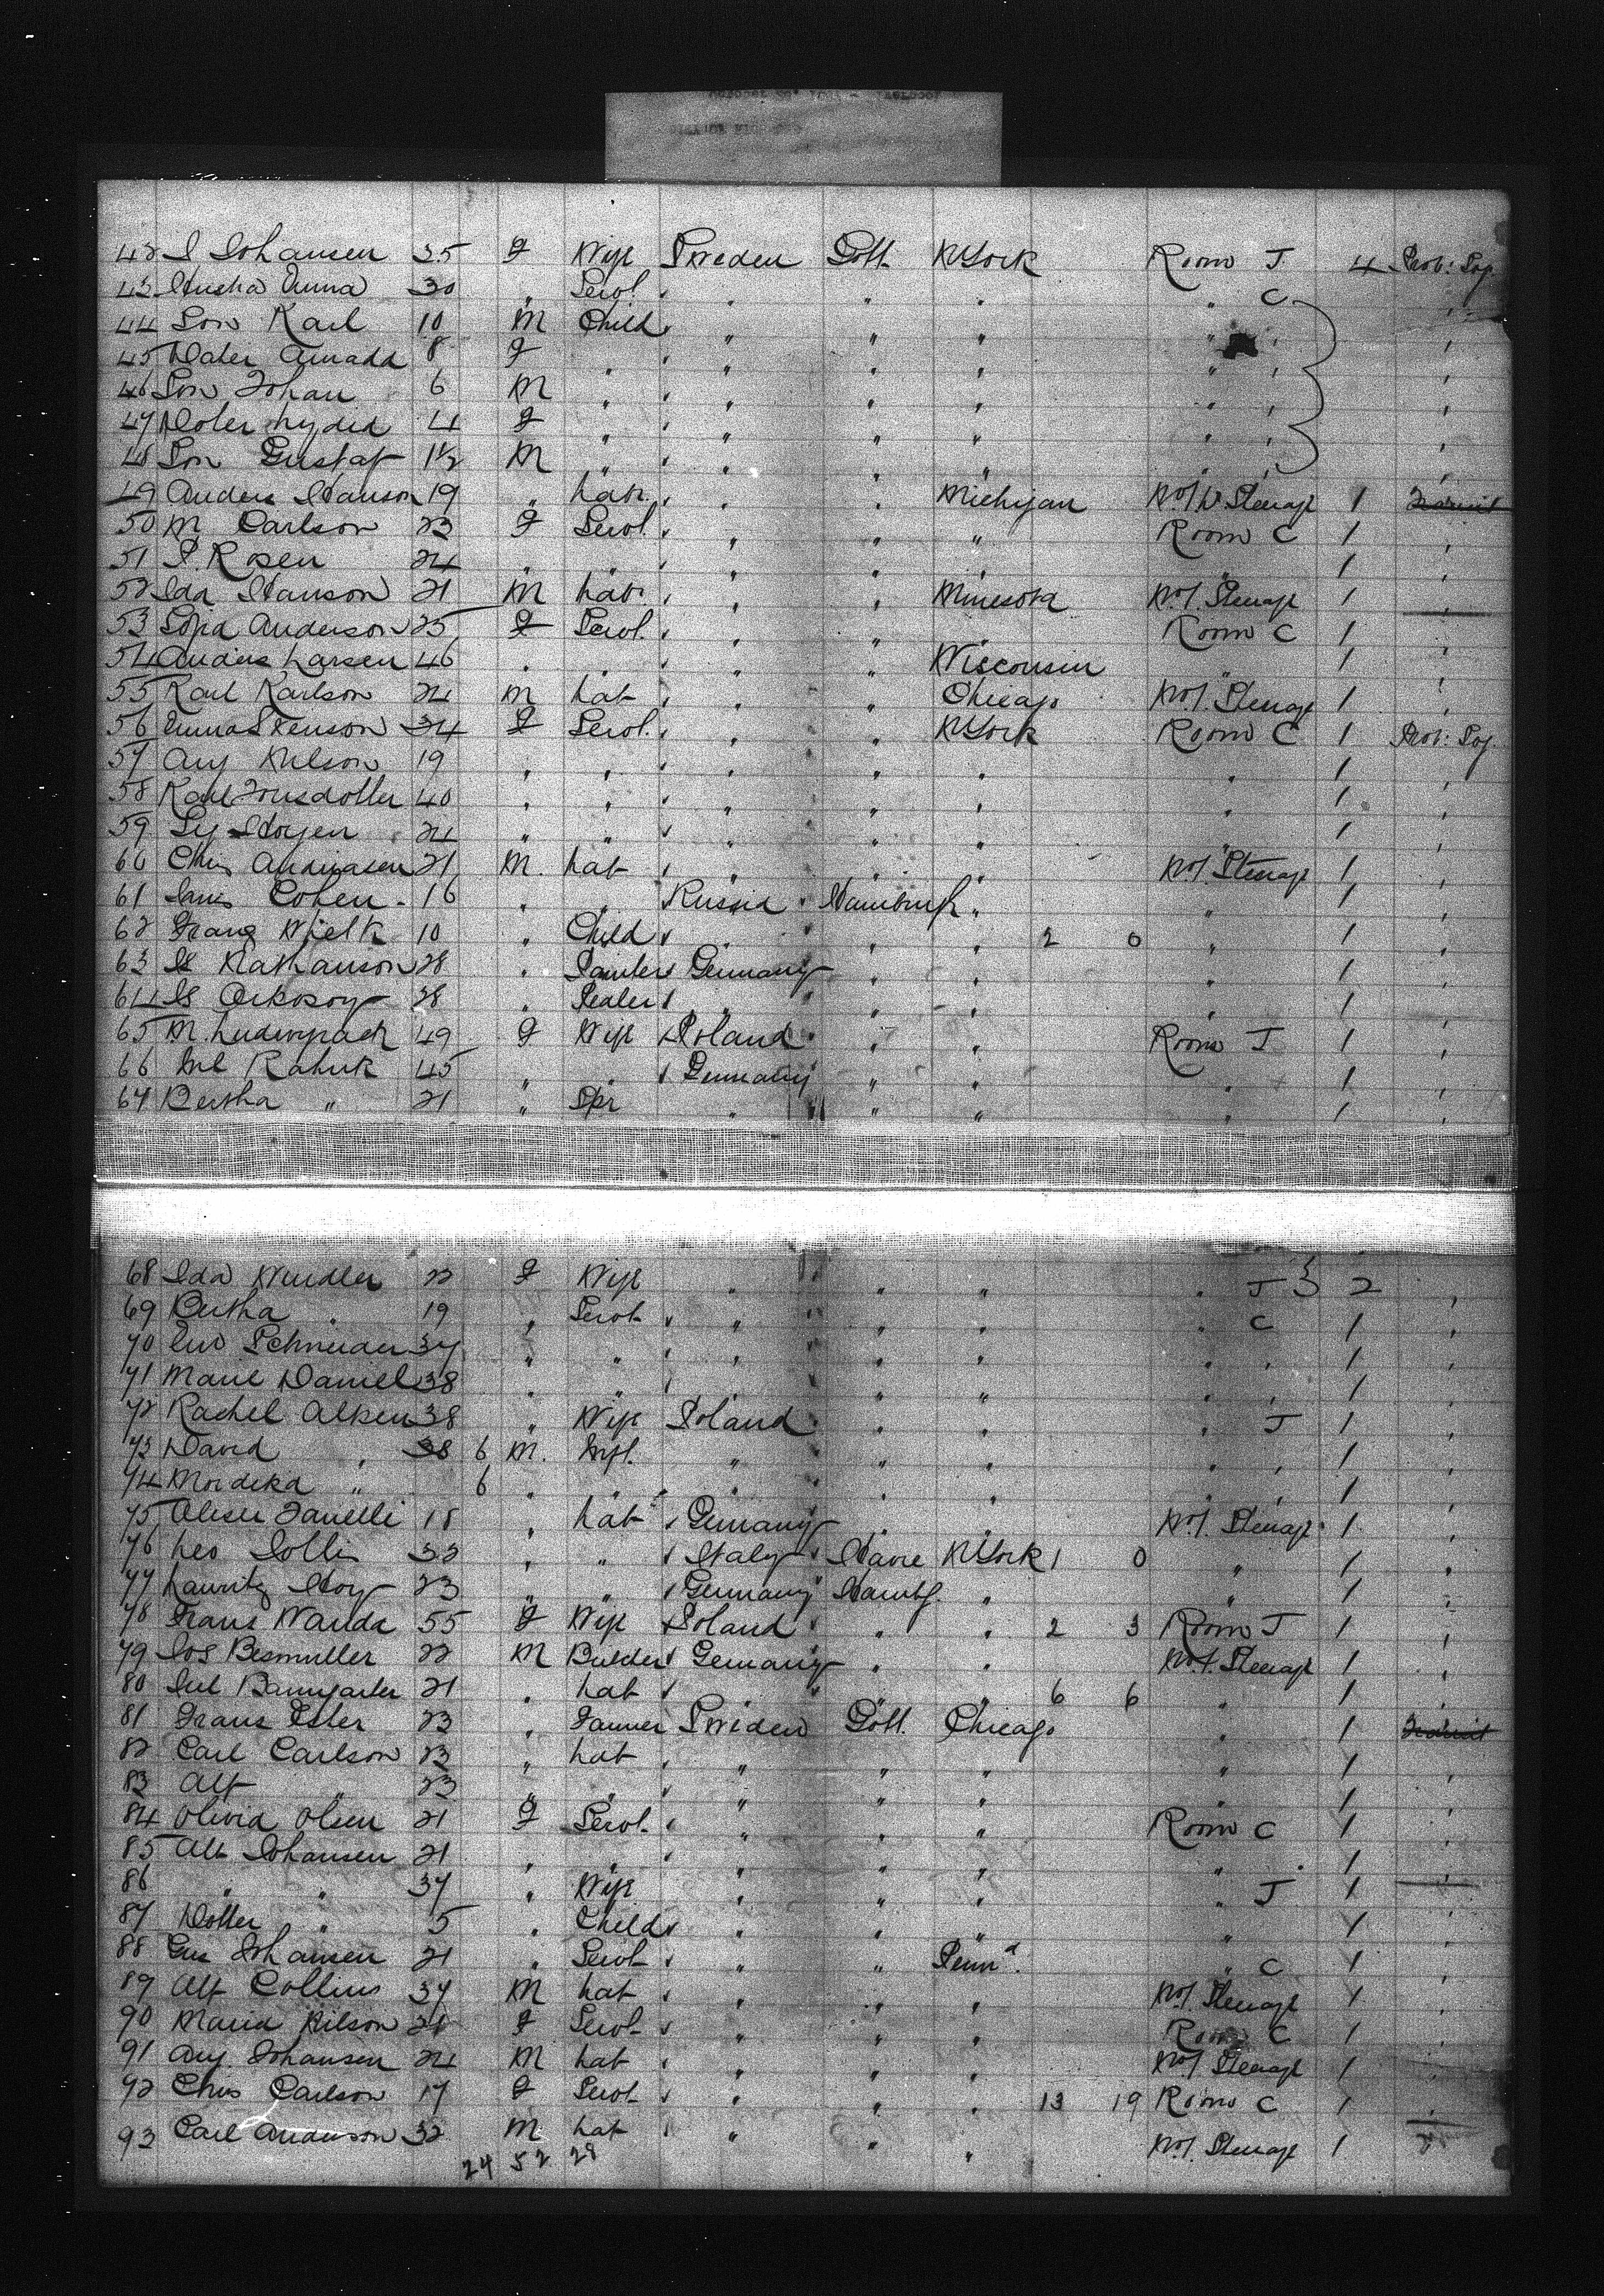 42 I Johansen 35 F Wife Sweden Gott. N York Room J 4 Prob: Soj.
43 Husha Anna 30 " Servt. " " " " C "
44 Son Karl 10 M Child " " " " " "
45 Dater Amada 8 F " " " " " " "
46 Son Johan 6 M " " " " " " "
47 Doter Lydia 4 F " " " " " " "
48 Son Gustaf 1½ M " " " " " " "
49 Anders Hanson 19 " Labr. " " Michigan No 1 Steerage 1 Transit
50 M Carlson 23 F Servt. " " " Room C 1 "
51 S. Rosen 24 " " " " " " 1 "
52 Ida Hanson 21 M Labr. " " Minesota No 1. Steerage 1
53 Sofia Anderson 25 F Servt. " " " Room C 1 "
54 Anders Larsen 46 " " " " Wisconsin " 1 "
55 Karl Karlson 24 M Lab " " Chicago No 1. Steerage 1 "
56 Anna Stenson 34 F Servt. " " N York Room C 1 Prob: Soj.
57 Aug Nelson 19 " " " " " " 1 "
58 Karl Jonsdotter 40 " " " " " " 1 "
59 24 " " " " " " 1 "
60 Chris Andreasen 21 M. Lab " " " No 1. Steerage 1 "
61 Cohen 16 " " Russia Hamburg " " 1 "
62 Franz Wielk 10 " Child " " " 2 0 " 1 "
63 Is Nathanson 28 " Painter Germany " " " 1 "
64 Is 28 " Dealer " " " " 1 "
65 M. 49 F Wife Poland " " Room J 1 "
66 Jul 45 " " Germany " " " 1 "
67 Bertha " 21 " Spr " " " " 1 "
68 Ida Wendler 22 F Wife " " " " J 2 "
69 Bertha " 19 " Servt " " " " C 1 "
70 Schneider 37 " " " " " " " 1 "
71 Marie Daniel 38 " " " " " " " 1 "
72 Rachel Alpen 38 " Wife Poland " " " J 1 "
73 David " 38 6 M. Inft. " " " " " 1 "
74 Mordeka " 6 " " " " " " " 1 "
75 18 " Lab Germany " " No 1. Steerage 1 "
76 Leo 32 " " Italy Havre N York 1 0 " 1 "
77 Lauritz Hoy 23 " " Germany Hambg. " " 1 "
78 Frans Wanda 55 F Wife Poland " " 2 3 Room J 1 "
79 Jos Besmuller 22 M Builder Germany " " No 1. Steerage 1 "
80 Jul Baumgarter 21 " Lab " " " 6 6 " 1 "
81 Frans Ester 23 " Farmer Sweden Gott. Chicago " 1 Transit
82 Carl Carlson 23 " Lab " " " " 1 "
83 Alf " 23 " " " " " " 1 "
84 Olivia Olsen 21 F Servt. " " " Room C 1 "
85 Alb Johansen 21 " " " " " " " 1 "
86 " " 37 " Wife " " " " J 1
87 Dotter " 5 " Child " " " " 1 "
88 Gus Johansen 21 " Servt " " Penna. " C 1 "
89 Alf Collins 37 M Lab " " " No 1. Steerage 1 "
90 Maria Nilson 21 F Servt " " " Room C 1 "
91 Aug. Johansen 24 M Lab " " " No 1 Steerage 1 "
92 Chris Carlson 17 F Servt " " " 13 19 Room C 1 "
93 Carl Anderson 32 M Lab " " " No 1. Steerage 1 "
24 52 28